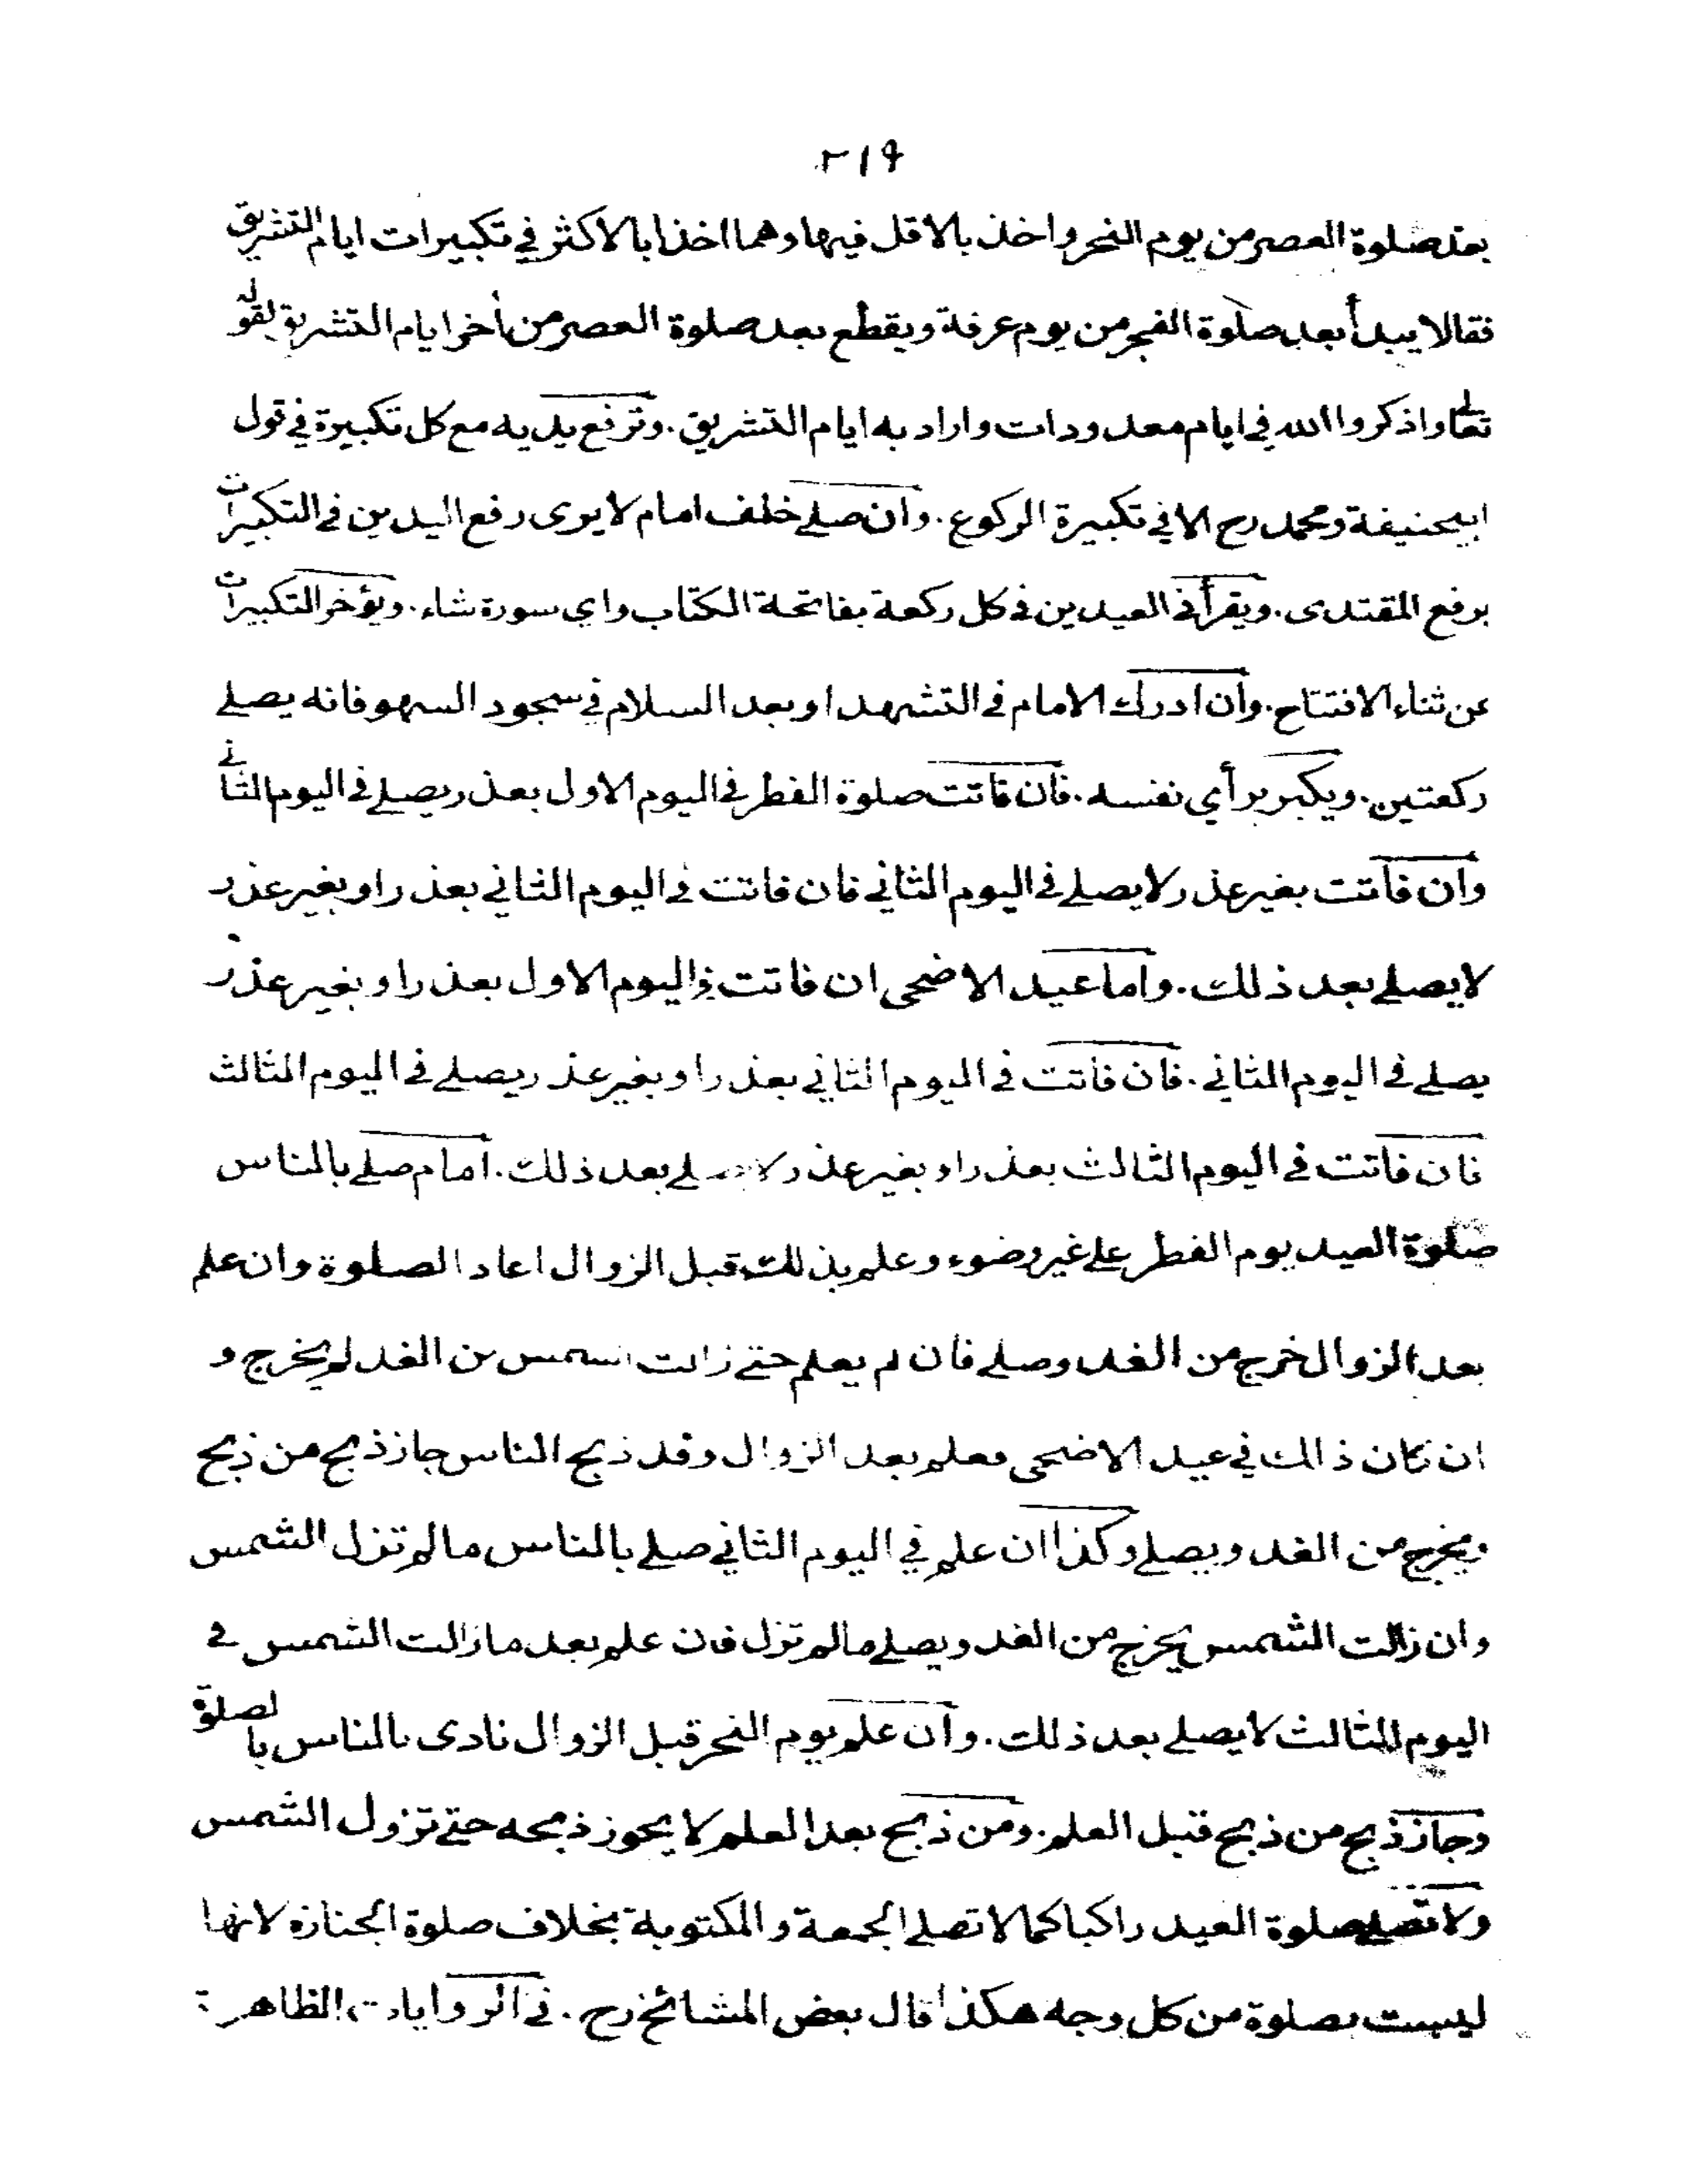 ٢١٩
بعد صلوة العصر من يوم النحر واخذ بالاقل فيها وهما اخذا بالاكثر في تكبيرات ايام التشريق
فقالا يبدأ بعد صلوة الفجر من يوم عرفة ويقطع بعد صلوة العصر من أخر ايام التشريق لقوله
تعالى واذكروا الله في ايام معدودات واراد به ايام التشريق. وترفع يديه مع كل تكبيرة في قول
ابيحنيفة ومحمد رح الا في تكبيرة الركوع. وان صلے خلف امام لا يرى رفع اليدين في التكبيرات
يرفع المقتدى. ويقرأ في العيدين في كل ركعة بفاتحة الكتاب واي سورة شاء. ويؤخر التكبيرات
عن ثناء الافتتاح. وان ادرك الامام في التشهد او بعد السلام في سجود السهو فانه يصلے
ركعتين. ويكبر برأي نفسه. فان فاتت صلوة الفطر في اليوم الاول بعذر يصلے في اليوم الثاني
وان فاتت بغير عذر لا يصلے في اليوم الثاني فان فاتت في اليوم الثاني بعذر او بغير عذر
لا يصلے بعد ذلك. واما عيد الاضحى ان فاتت في اليوم الاول بعذر او بغير عذر
يصلے في اليوم الثاني. فان فاتت في اليوم الثاني بعذر او بغير عذر يصلے في اليوم الثالث
فان فاتت في اليوم الثالث بعذر او بغير عذر لا يصلے بعد ذلك. امام صلے بالناس
صلوة العيد يوم الفطر علے غير وضوء وعلم بذلك قبل الزوال اعاد الصلوة وان علم
بعد الزوال خرج من الغد وصلے فان لم يعلم حتے زالت الشمس من الغد لم يخرج و
ان كان ذالك في عيد الاضحى فعلم بعد الزوال وقد ذبح الناس جاز ذبح من ذبح
ويخرج من الغد ويصلے وكذا ان علم في اليوم الثاني صلے بالناس ما لم تزل الشمس
وان زالت الشمس يخرج من الغد ويصلے ما لم تزل فان علم بعد ما زالت الشمس في
اليوم الثالث لا يصلے بعد ذلك. وان علم يوم النحر قبل الزوال نادى بالناس بالصلوة
وجاز ذبح من ذبح قبل العلم. ومن ذبح بعد العلم لا يجوز ذبحه حتے تزول الشمس
ولا تصلے صلوة العيد راكبا كما لا تصلے الجمعة والمكتوبة بخلاف صلوة الجنازة لانها
ليست بصلوة من كل وجه هكذا قال بعض المشائخ رح. في الروايات الظاهرة